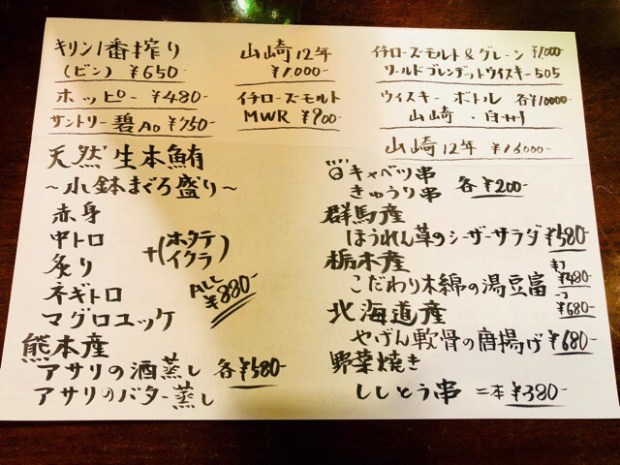 キリン1番搾り
(ビン) ¥650-
ホッピー ¥480-
サントリー碧Ao ¥750-
山崎12年
¥1.000-
イチローズモルト
MWR ¥900-
イチローズモルト&グレーン ¥1.000-
ワールドブレンデットウイスキー505
ウイスキー ボトル 各¥10000-
山崎・白州
山崎12年 ¥13000-
天然生本鮪
~小鉢まぐろ盛り~
赤身
中トロ
炙り
ネギトロ
マグロユッケ
+(ホタテ
イクラ)
ALL
¥880-
熊本産
アサリの酒蒸し 各¥580-
アサリのバター蒸し
キャベツ串
きゅうり串 各¥200-
群馬産
ほうれん草のシーザーサラダ ¥580-
栃木産
こだわり木綿の湯豆富
¥480-
¥680-
北海道産
やげん軟骨の唐揚げ ¥680-
野菜焼き
ししとう串 二本 ¥380-